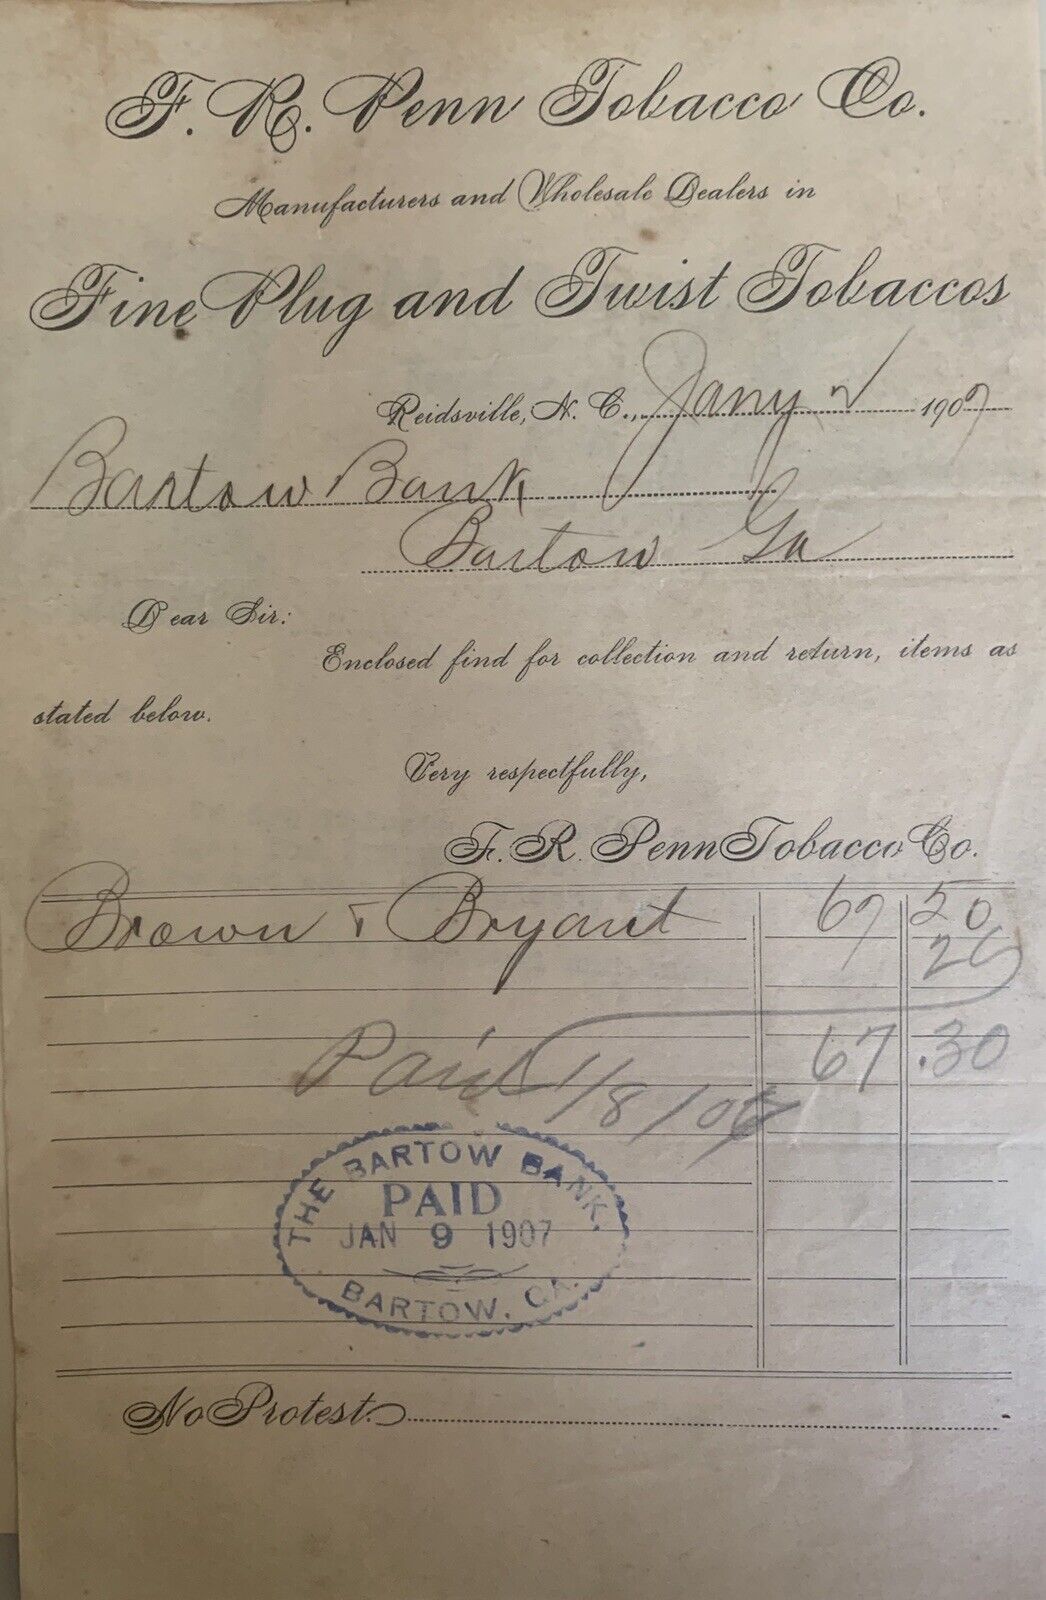 F. R. Penn Tobacco Co.
Manufacturers and Wholesale Dealers in
Fine Plug and Twist Tobaccos
Reidsville, N. C., Jany 2 1907
Bartow Bank
Bartow Ga
Dear Sir:
Enclosed find for collection and return, items as
stated below.
Very respectfully,
F. R. Penn Tobacco Co.
Brown & Bryant 67 50
20
67.30
Paid 1/8/07
THE BARTOW BANK.
PAID
JAN 9 1907
BARTOW. GA.
No Protest.